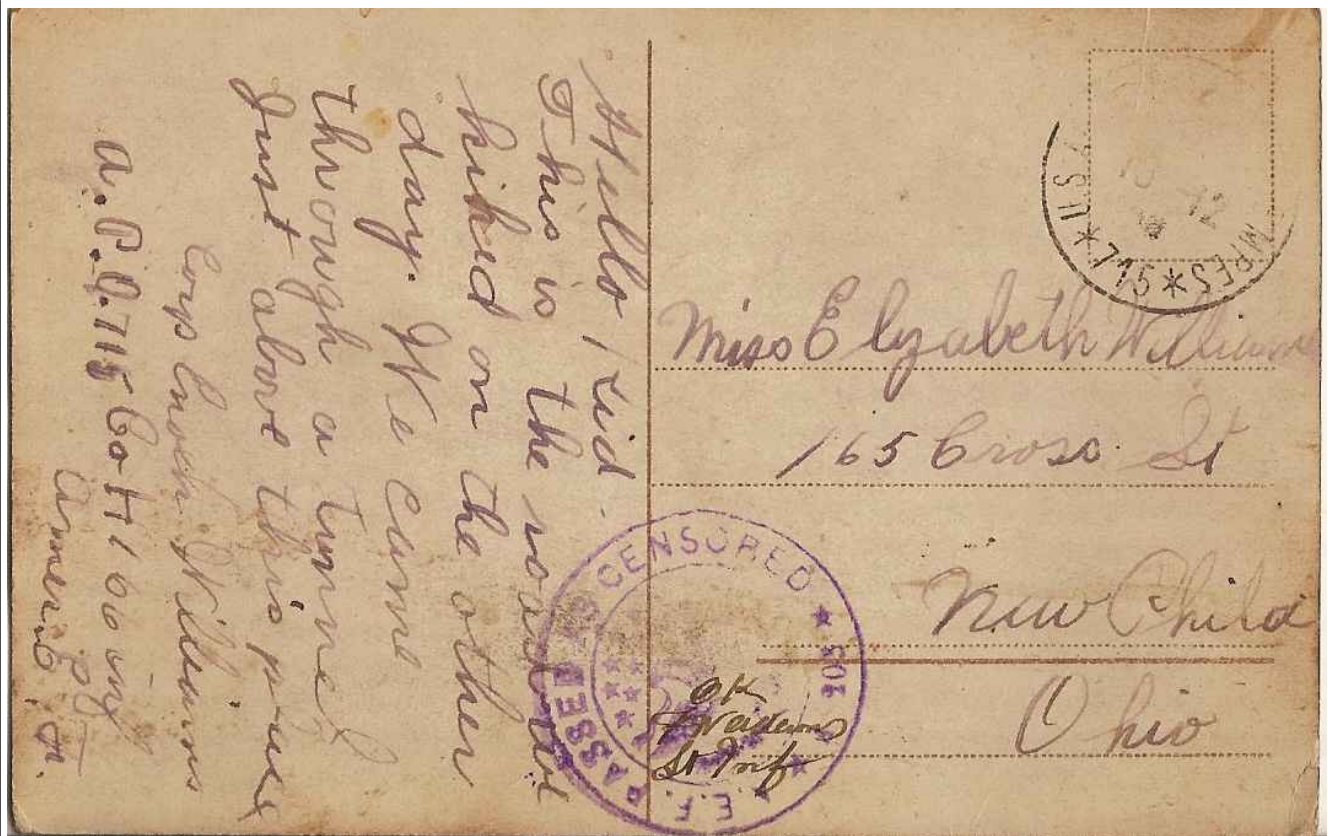 Hello Kid.
This is the road we
hiked on the other
day. We came
through a tunnel
Just above this place
Corp Enoch Williams
a.P.O. 715 Co H 160 inf
Amer. E. F.
Miss Elyzabeth Williams
165 Cross St
New Phila
Ohio
PASSED AS CENSORED
A.E.F.
OK
Lt Inf
U.S.